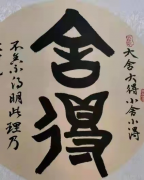 舍得
大舍大得小舍小得
不舍不得明此理乃